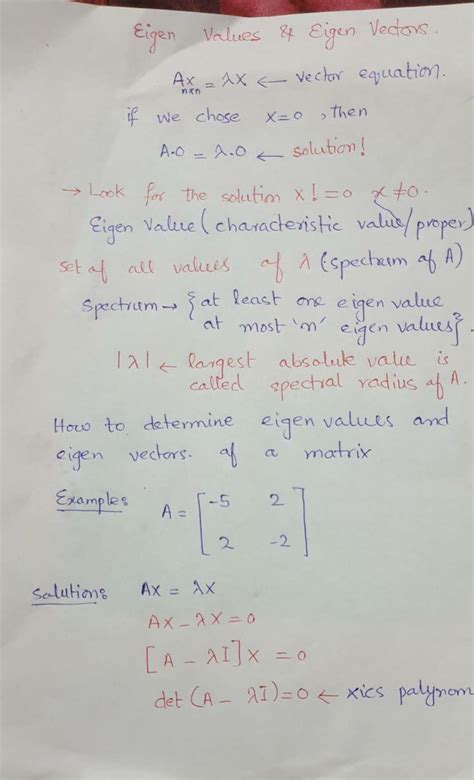 Eigen Values & Eigen Vectors.
Ax = λx ← vector equation.
n×n
if we chose x=0 , then
A·0 = λ·0 ← solution!
→ Look for the solution x!=0 x≠0.
Eigen Value (characteristic value/proper)
set of all values of λ (spectrum of A)
Spectrum → {at least one eigen value
at most 'n' eigen values}.
|λ| ← largest absolute value is
called spectral radius of A.
How to determine eigen values and
eigen vectors. of a matrix
Example: A = [-5 2
2 -2]
Solution: AX = λX
AX - λX = 0
[A - λI]X = 0
det (A - λI) = 0 ← xics polynom